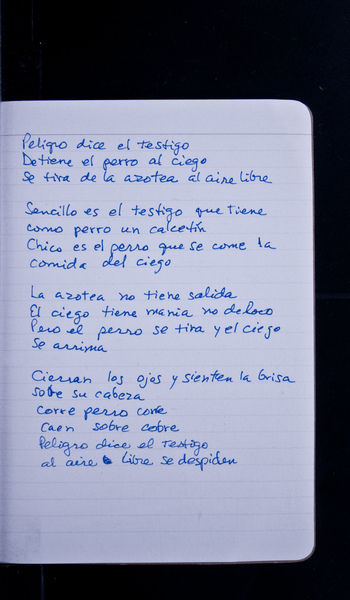 Peligro dice el testigo
Detiene el perro al ciego
Se tira de la azotea al aire libre
Sencillo es el testigo que tiene
como perro un calcetín
Chico es el perro que se come la
comida del ciego
La azotea no tiene salida
El ciego tiene mania no de loco
Pero el perro se tira y el ciego
Se arrima
Cierran los ojos y sienten la brisa
sobre su cabeza
corre perro corre
caen sobre cobre
Peligro dice el testigo
al aire libre se despiden